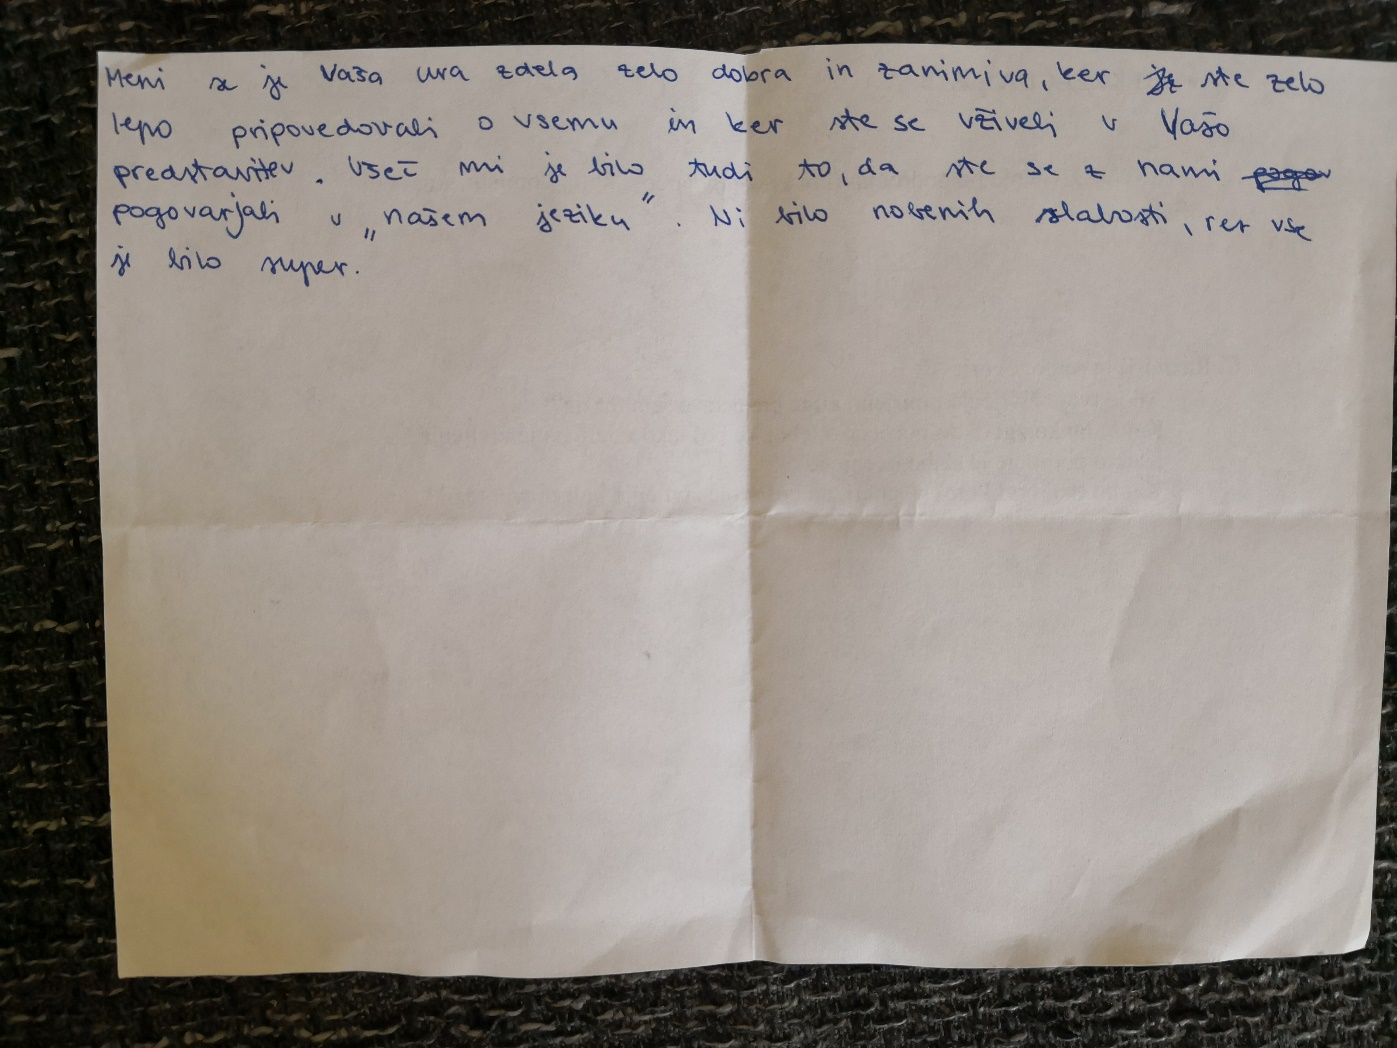 Meni se je Vaša ura zdela zelo dobra in zanimiva, ker ste zelo
lepo pripovedovali o vsemu in ker ste se vživeli v Vašo
predstavitev. Všeč mi je bilo tudi to, da ste se z nami pogov
pogovarjali v „našem jeziku“. Ni bilo nobenih slabosti, res vse
je bilo super.